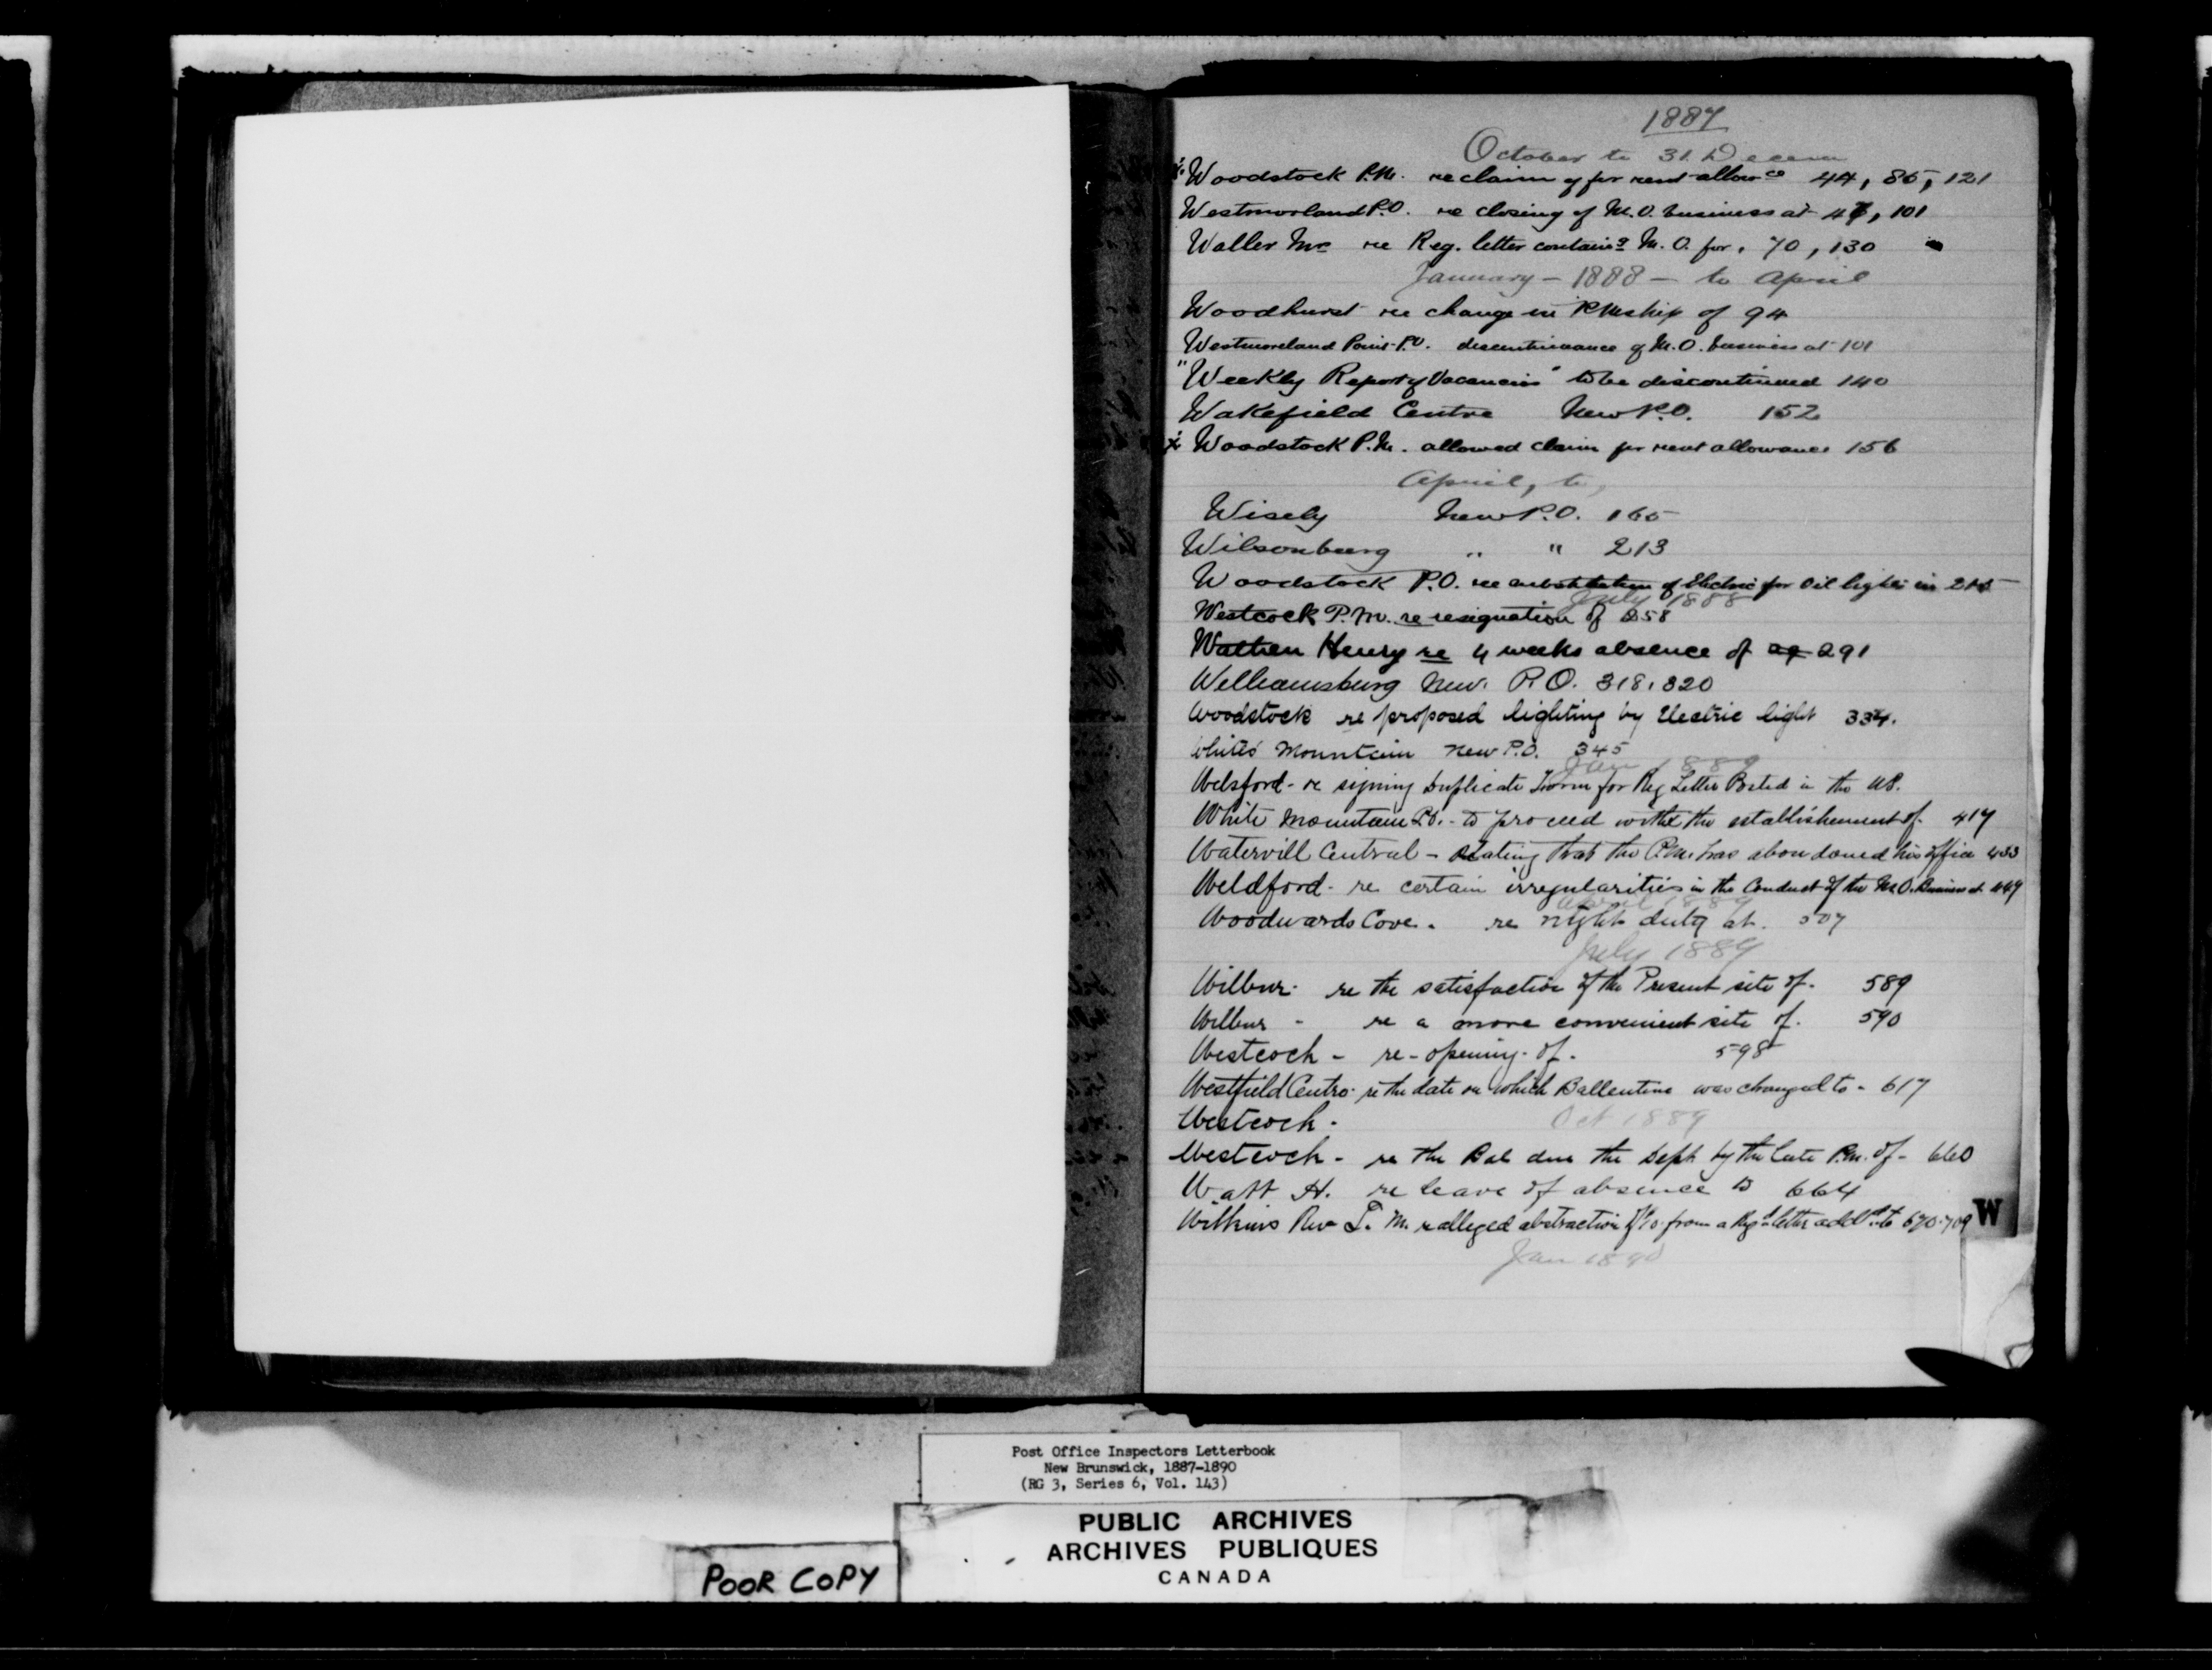 1887
October to 31. Decem
Woodstock P.M. re claim of for rent allowce 44, 85, 121
Westmorland P.O. re closing of M.O. business at 101
Waller Mr re Reg. letter containg M.O. for, 70, 130
January - 1888 - to April
Woodhurst re change in PMship of 94
Westmoreland Point P.O. discontinuance of M.O. business at 101
"Weekly Report of Vacancies" to be discontinued 140
Wakefield Centre New P.O. 152
x Woodstock P.M. allowed claim for rent allowance 156
April, to,
Wisely New P.O. 165
Wilsonburg " " 213
Woodstock P.O. re substitution of Electric for Oil lights in
July 1888
Westcock P.M. re resignation of 258
Henry re 4 weeks absence of 291
Welliamsburg New. P.O. 318, 320
Woodstock re proposed lighting by Electric light 334.
White's Mountain New P.O. 345
Jan 1889
Welsford - re signing Duplicate Form for Reg Letter Posted in the
White Mountain P.O. - to proceed with the establishment of. 417
Watervill Central - stating that the P.M. has abandoned his office 433
Weldford - re certain irregularities in the Conduct of the M.O. Business at 449
April 1889
Woodwards Cove. re night duty at. 507
July 1889
Wilbur - re the satisfaction of the Present site of. 589
Wilbur - re a more convenient site of. 590
Westcock - re-opening of. 598
Westfield Centre - re the date on which Ballentine was changed to - 617
Westcock -
Oct 1889
Westcock - re the Bal due the Dept by the late P.M. of - 660
Watt H. re leave of absence to 664
Wilkins Rev T. M. re alleged abstraction of from a Regd letter addd to 670. 709
W
Jan 1890
Post Office Inspectors Letterbook
New Brunswick, 1887-1890
(RG 3, Series 6, Vol. 143)
PUBLIC ARCHIVES
ARCHIVES PUBLIQUES
CANADA
POOR COPY